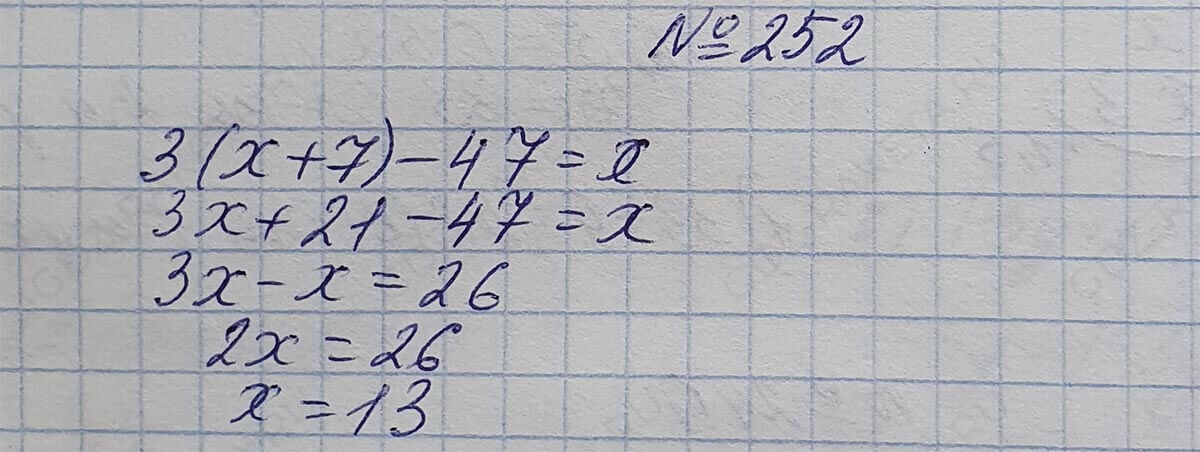 №252
3(x+7)-47=x
3x+21-47=x
3x-x=26
2x=26
x=13